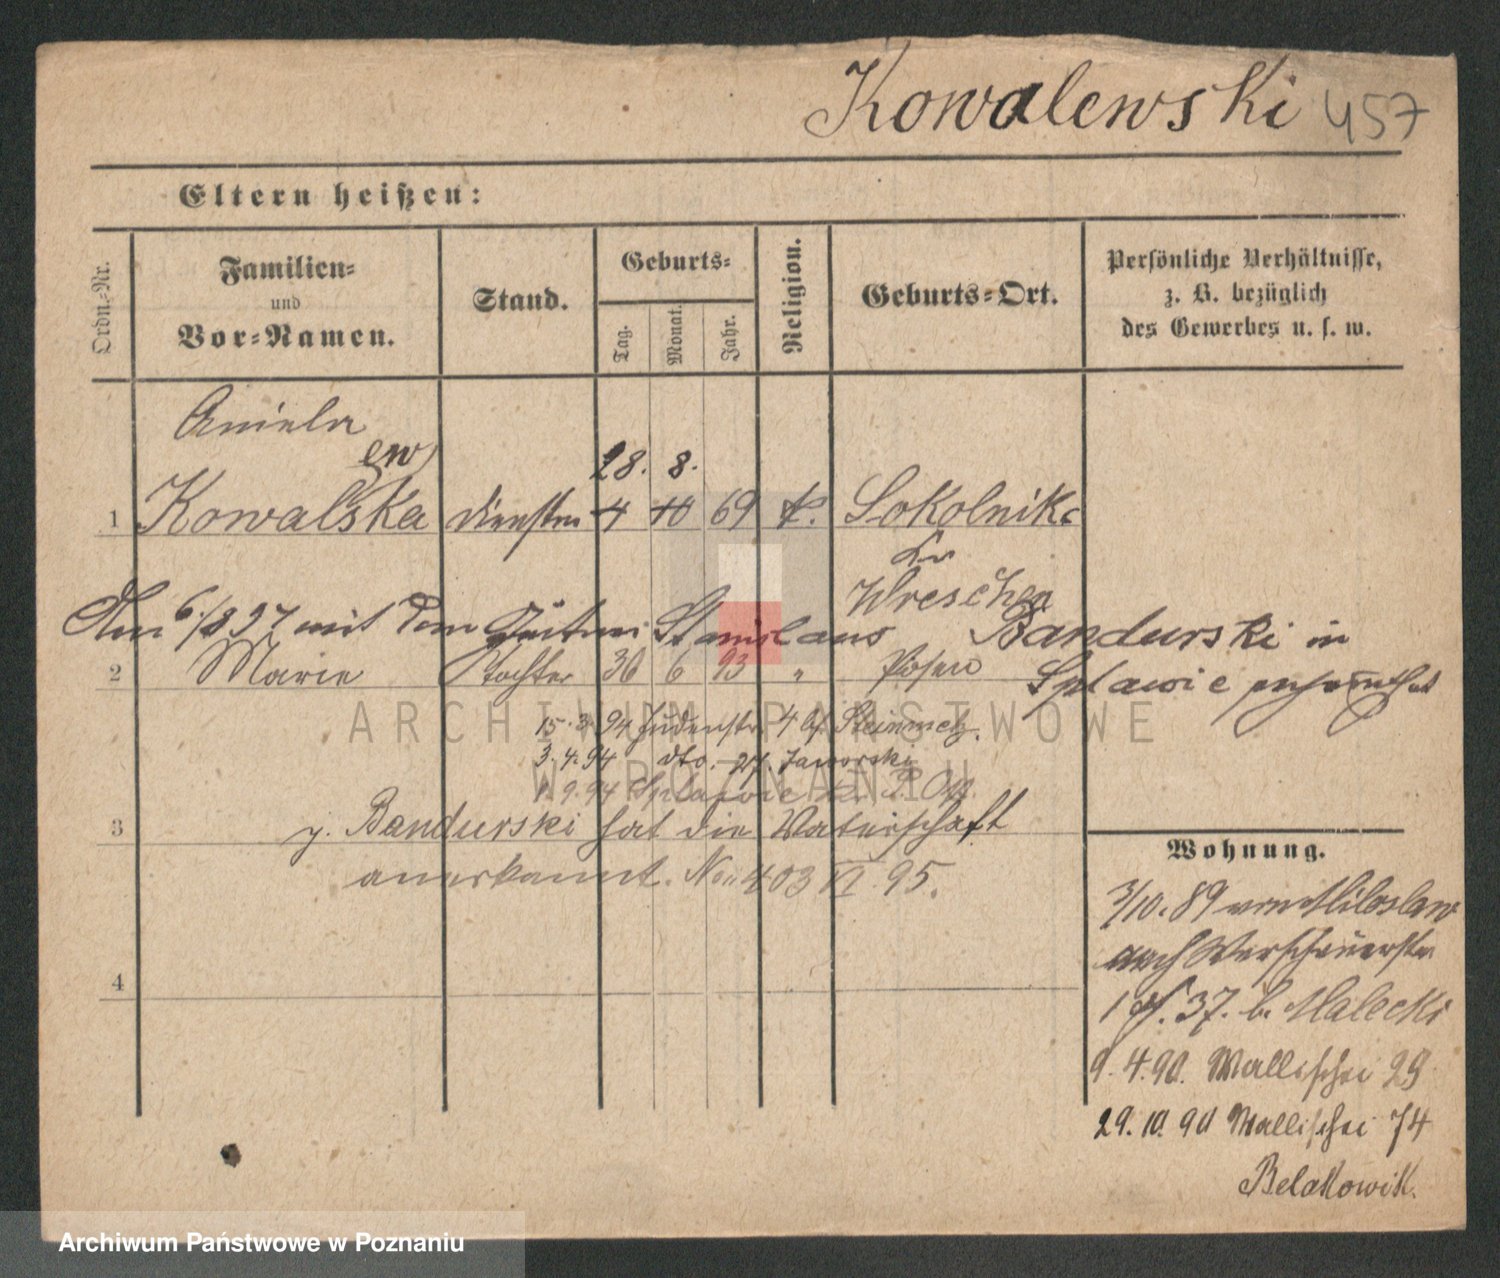 Kowalewski 457
Eltern heißen:
Ordn.-Nr.
Familien-
und
Vor-Namen.
Stand.
Geburts-
Tag.
Monat.
Jahr.
Religion.
Geburts-Ort.
Persönliche Verhältnisse,
z. B. bezüglich
des Gewerbes u. s. w.
Aniela
ew
28. 8.
1 Kowalska 4 10 69 k. Sokolnik
Kr
Wreschen
Am 6/8 97 mit dem Stanislaus Bandurski in
2 Marie Tochter 30 6 93 " Posen
Splawie
15.3.94 Judenstr. 4 bf. Steinmetz.
3.4.94 dto. 27. Jaworski
1.9.94 Splawie
3 p. Bandurski hat die Vaterschaft
anerkannt. 403 VI. 95.
4
Wohnung.
3/10.89 von Miloslaw
nach
37. b. Malecki
9.4.90. Wallischei 29
29.10.90 Wallischei 74
ARCHIWUM PAŃSTWOWE
W POZNANIU
Archiwum Państwowe w Poznaniu